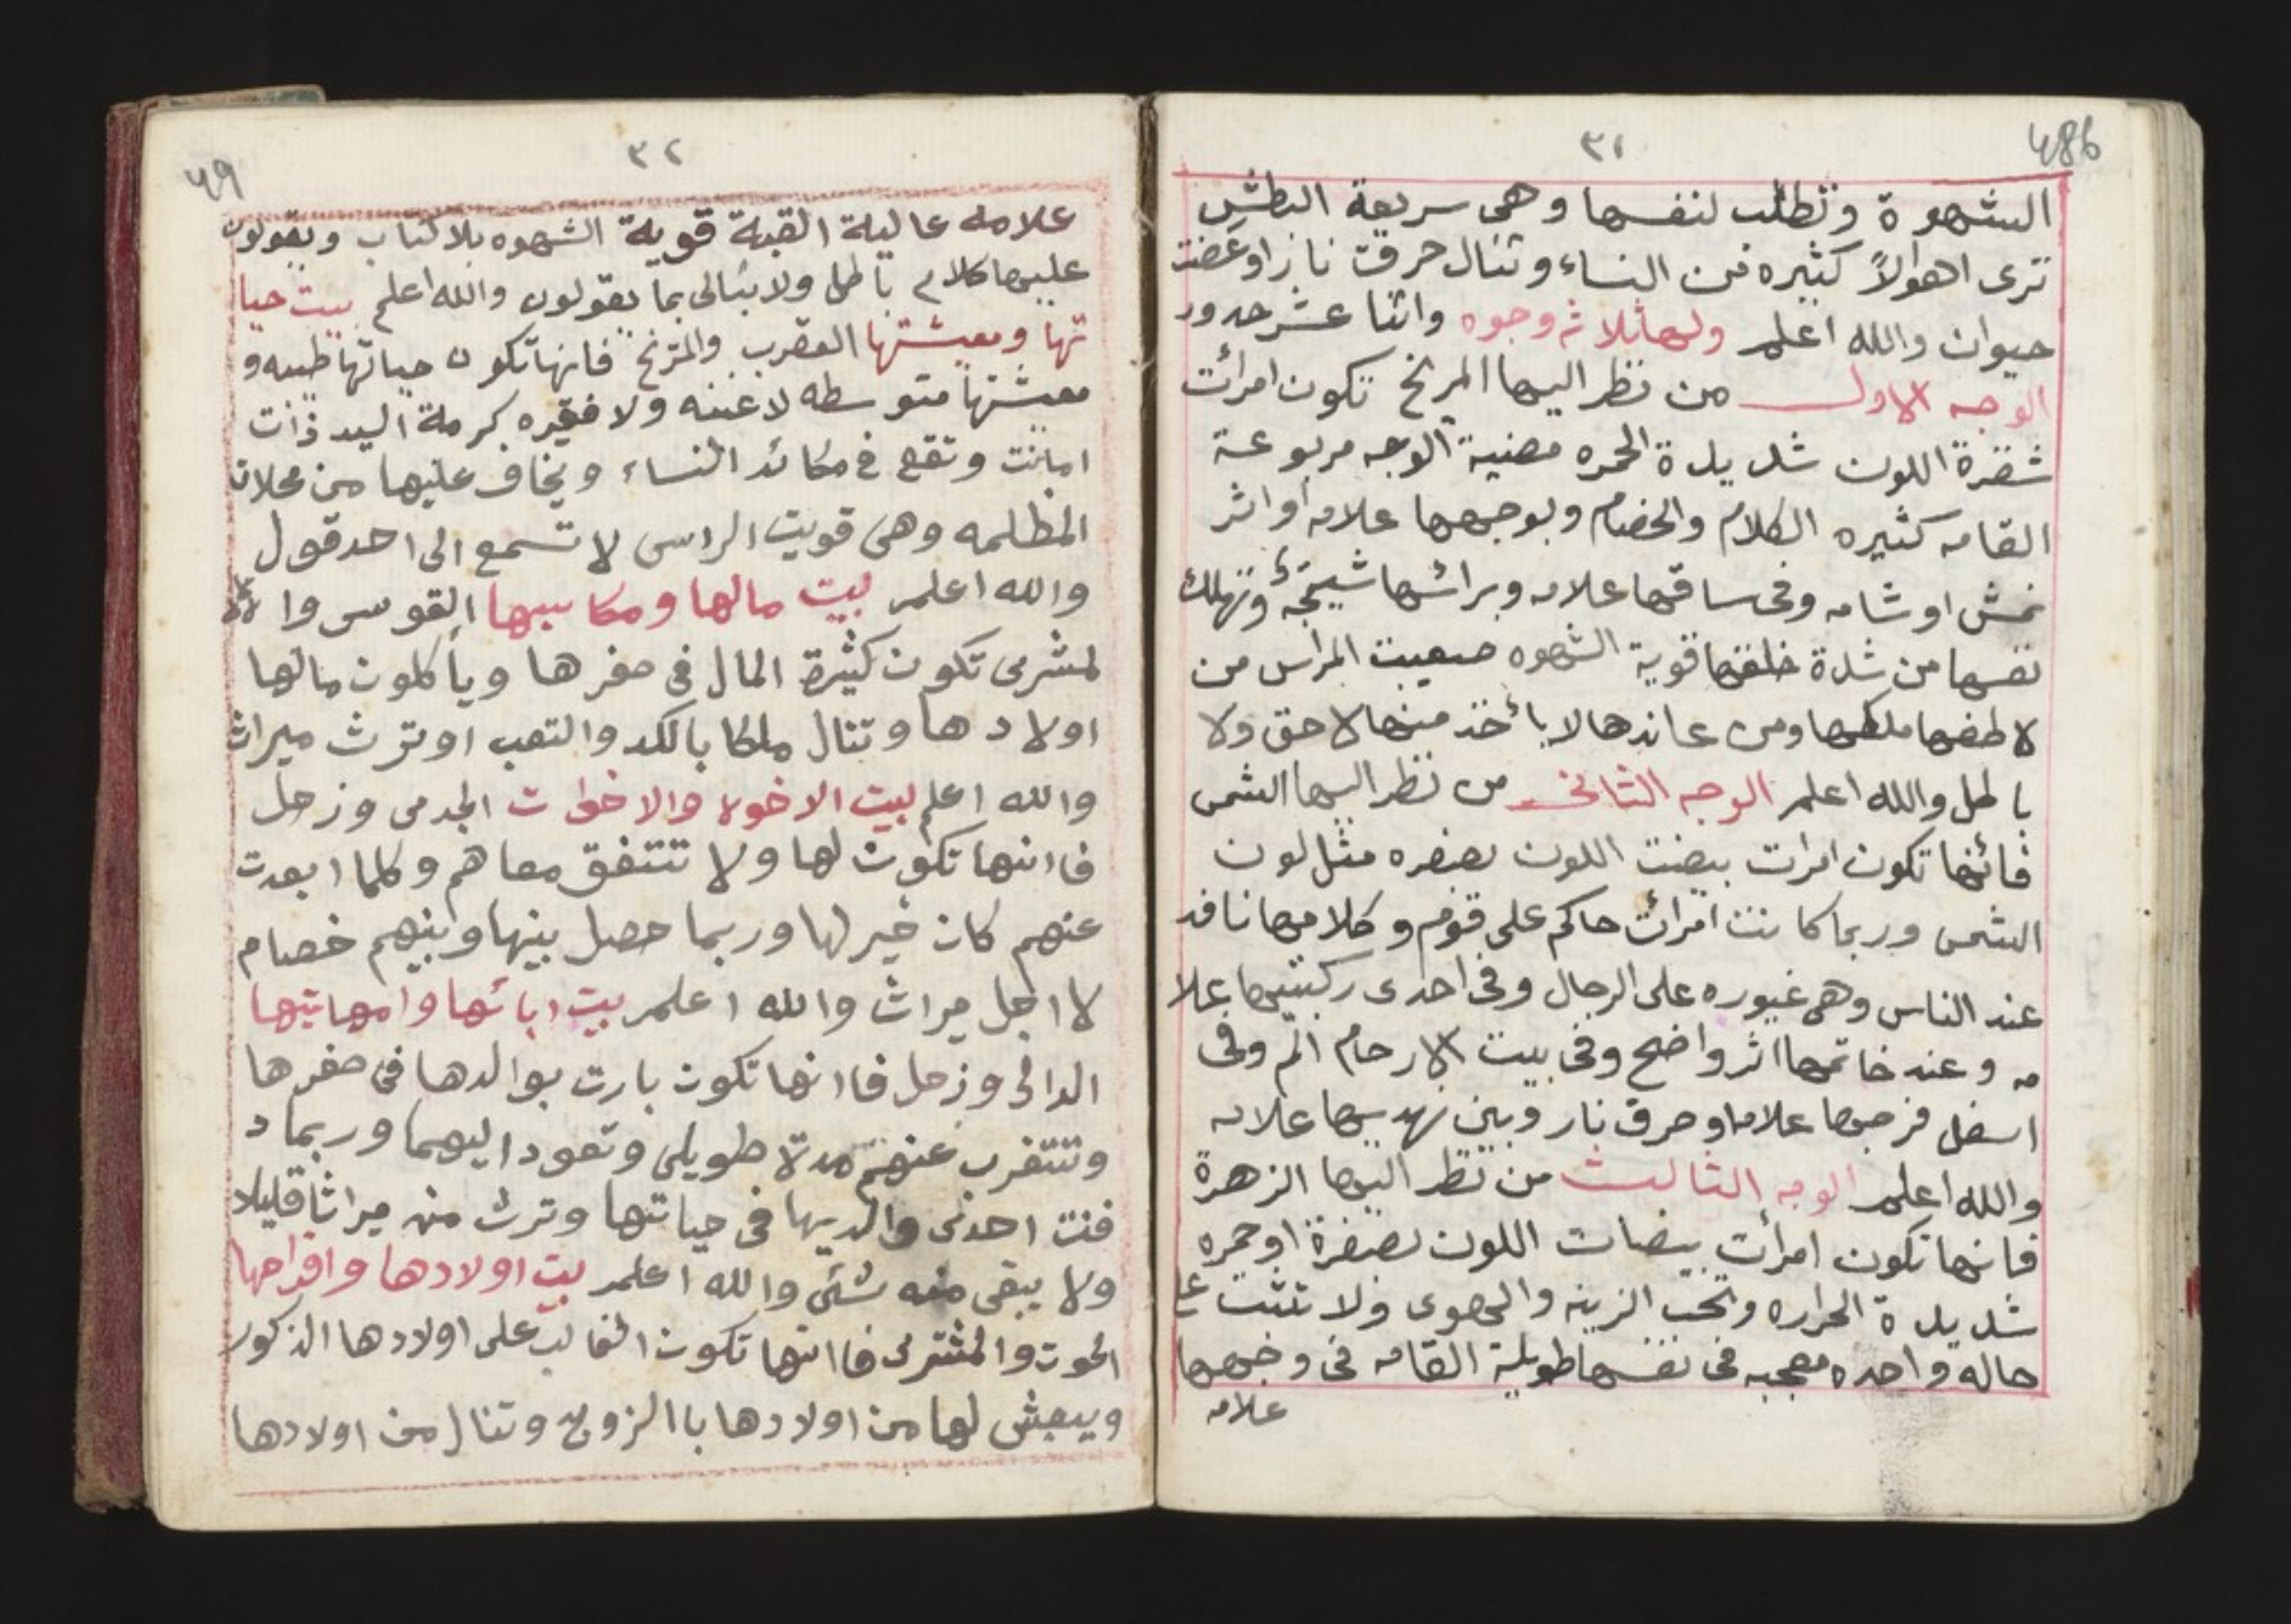 486
٣١
الشهوة وتطلب لنفسها وهى سريعة البطش
ترى اهوالاً كثيره من النساء وتنال حرق نار او عضت
حيوان والله اعلم ولها ثلاثه وجوه واثنا عشر حدود
الوجه الاول من نظر اليها المريخ تكون امرأت
شقرة اللون شديدة الحمره مضنية الوجه مربوعة
القامه كثيره الكلام والخصام وبوجهها علامه أو اثر
نمش او شامه وفى ساقها علامه وبرائسها شيخه وتهلك
نفسها من شدة خلقها قوية الشهوه صعيبت المراس من
لاطفها ملكها ومن عاندها لا يأخذ منها لا حق ولا
باطل والله اعلم الوجه الثانى من نظر اليها الشمس
فائنها تكون امرات بيضت اللون بصفره مثل لون
الشمس وربما كانت امرأت حاكم على قوم وكلامها نافد
عند الناس وهى غيوره على الرجال وفى احدى ركبتيها علا
مه وعند خاتمها اثر واضح وفى بيت الارحام الم وفى
اسفل فرجها علامه او حرق نار وبين نهديها علامه
والله اعلم الوجه الثالث من نظر اليها الزهرة
فانها تكون امرأت بيضات اللون بصفرة او حمره
شديدة الحراره وتحب الزينه والهوى ولا تثبت ع
حاله واحده معجبه فى نفسها طويلة القامه فى وجهها
علامه
49
٣٢
علامه عالية القبة قوية الشهوه بلا كتاب ويقولون
عليها كلام باطل ولا تبالى بما يقولون والله اعلم بيت حيا
تها ومعيشتها العقرب والمريخ فانها تكون حياتها طيبه و
معيشتها متوسطه لا غنيه ولا فقيره كرمة اليد ذات
امانت وتقع فى مكائد النساء ويخاف عليها من محلات
المظلمه وهى قويت الراس لا تسمع الى احد قول
والله اعلم بيت مالها ومكاسبها القوس وا
لمشرى تكون كثيرة المال فى صغرها ويأكلون مالها
اولادها وتنال ملكا بالكد والتعب او ترث ميراث
والله اعلم بيت الاخوه والاخوات الجدى وزحل
فاانها تكون لها ولا تتتفق معاهم وكلما ابعدت
عنهم كان خير لها وربما حصل بينها وبنيهم خصام
لااجل ميراث والله اعلم بيت ابائها وامهاتيها
الدالى وزحل فاانها تكون بارت بوالدها فى صغرها
وتتتغرب عنهم مدة طويلى وتعود اليهما وربما د
فنت احدى والديها فى حياتها وترث منه ميراثا قليلا
ولا يبقى منه شئى والله اعلم بيت اولادها وافراحها
الحوت والمشترى فاانها تكون الغالب على اولادها الذكور
ويعيش لها من اولادها باالزوج وتنال من اولادها